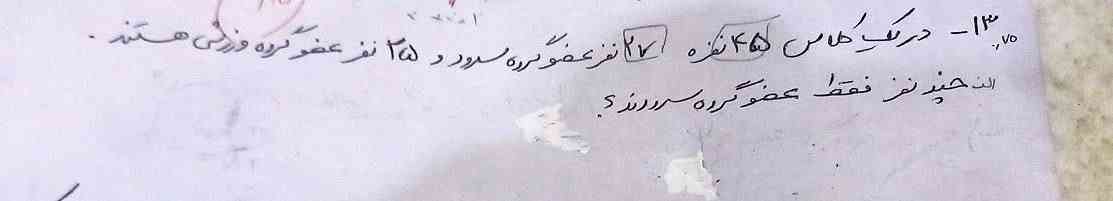 ۱۳- در یک کلاس ۴۵ نفره ۲۷ نفر عضو گروه سرود و ۲۵ نفر عضو گروه ورزشی هستند.
۰,۷۵
الف چند نفر فقط عضو گروه سرودند؟